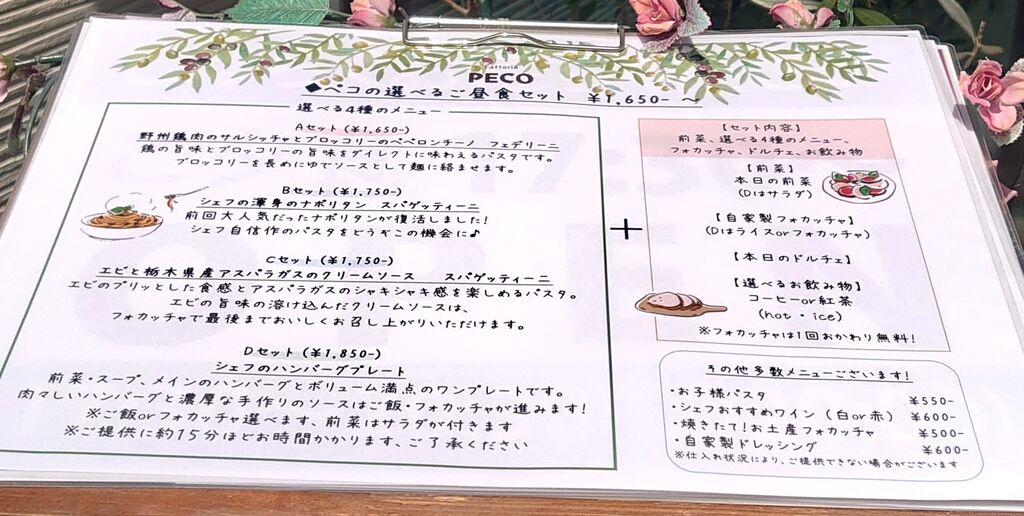 Fattoria
PECO
◆ペコの選べるご昼食セット ¥1,650- ～
選べる4種のメニュー
Aセット(¥1,650-)
野州鶏肉のサルシッチャとブロッコリーのペペロンチーノ フェデリーニ
鶏の旨味とブロッコリーの旨味をダイレクトに味わえるパスタです。
ブロッコリーを長めにゆでソースとして麺に絡ませます。
Bセット(¥1,750-)
シェフの渾身のナポリタン スパゲッティーニ
前回大人気だったナポリタンが復活しました!
シェフ自信作のパスタをどうぞこの機会に♪
Cセット(¥1,750-)
エビと栃木県産アスパラガスのクリームソース スパゲッティーニ
エビのプリッとした食感とアスパラガスのシャキシャキ感を楽しめるパスタ。
エビの旨味の溶け込んだクリームソースは、
フォカッチャで最後までおいしくお召し上がりいただけます。
Dセット(¥1,850-)
シェフのハンバーグプレート
前菜・スープ、メインのハンバーグとボリューム満点のワンプレートです。
肉々しいハンバーグと濃厚な手作りのソースはご飯・フォカッチャが進みます!
※ご飯orフォカッチャ選べます、前菜はサラダが付きます
※ご提供に約15分ほどお時間かかります、ご了承ください
+
【セット内容】
前菜、選べる4種のメニュー、
フォカッチャ、ドルチェ、お飲み物
【前菜】
本日の前菜
(Dはサラダ)
【自家製フォカッチャ】
(Dはライスorフォカッチャ)
【本日のドルチェ】
【選べるお飲み物】
コーヒーor紅茶
(hot・ice)
※フォカッチャは1回おかわり無料!
その他多数メニューございます!
・お子様パスタ ¥550-
・シェフおすすめワイン(白or赤) ¥600-
・焼きたて!お土産フォカッチャ ¥500-
・自家製ドレッシング ¥600-
※仕入れ状況により、ご提供できない場合がございます